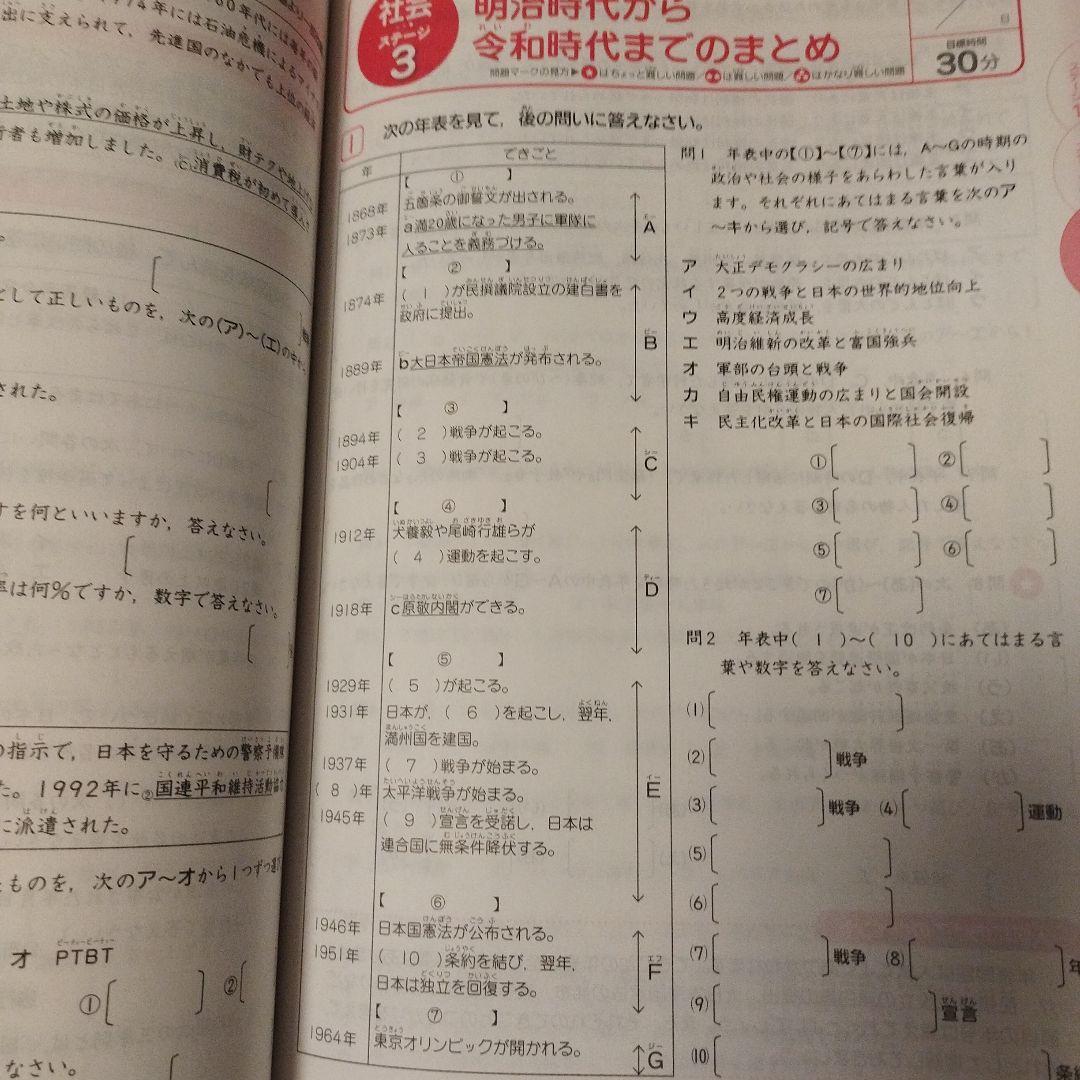 出に支えられて，先進国のなかでも上位の
土地や株式の価格が上昇し，財テクや地上
行者も増加しました。ⓒ消費税が初めて導入
として正しいものを，次の(ア)～(エ)の
された。
すを何といいますか，答えなさい。
率は何％ですか，数字で答えなさい。
の指示で，日本を守るための警察予備隊
た。1992年に②国連平和維持活動協
に派遣された。
ものを，次のア～オから1つずつ選び
オ PTBT
①[ ] ②[
なさい。
社会
ステージ
3
明治時代から
令和時代までのまとめ
問題マークの見方▶ はちょっと難しい問題／ は難しい問題／ はかなり難しい問題
日
目標時間
30分
1 次の年表を見て，後の問いに答えなさい。
年 できごと
【 ① 】
1868年 五箇条の御誓文が出される。
1873年 a満20歳になった男子に軍隊に
入ることを義務づける。
A
【 ② 】
1874年 ( 1 )が民撰議院設立の建白書を
政府に提出。
B
1889年 b大日本帝国憲法が発布される。
【 ③ 】
1894年 ( 2 )戦争が起こる。
1904年 ( 3 )戦争が起こる。
C
【 ④ 】
1912年 犬養毅や尾崎行雄らが
( 4 )運動を起こす。
D
1918年 c原敬内閣ができる。
【 ⑤ 】
1929年 ( 5 )が起こる。
1931年 日本が，( 6 )を起こし，翌年，
満州国を建国。
1937年 ( 7 )戦争が始まる。
( 8 )年 太平洋戦争が始まる。
E
1945年 ( 9 )宣言を受諾し，日本は
連合国に無条件降伏する。
【 ⑥ 】
1946年 日本国憲法が公布される。
1951年 ( 10 )条約を結び，翌年，
日本は独立を回復する。
F
【 ⑦ 】
1964年 東京オリンピックが開かれる。
G
問1 年表中の【①】～【⑦】には，A～Gの時期の
政治や社会の様子をあらわした言葉が入り
ます。それぞれにあてはまる言葉を次のア
～キから選び，記号で答えなさい。
ア 大正デモクラシーの広まり
イ 2つの戦争と日本の世界的地位向上
ウ 高度経済成長
エ 明治維新の改革と富国強兵
オ 軍部の台頭と戦争
カ 自由民権運動の広まりと国会開設
キ 民主化改革と日本の国際社会復帰
①[ ] ②[ ]
③[ ] ④[ ]
⑤[ ] ⑥[ ]
⑦[ ]
問2 年表中( 1 )～( 10 )にあてはまる言
葉や数字を答えなさい。
(1)[ ]
(2)[ ]戦争
(3)[ ]戦争 (4)[ ]運動
(5)[ ]
(6)[ ]
(7)[ ]戦争 (8)[ ]年
(9)[ ]宣言
(10)[ ]条約